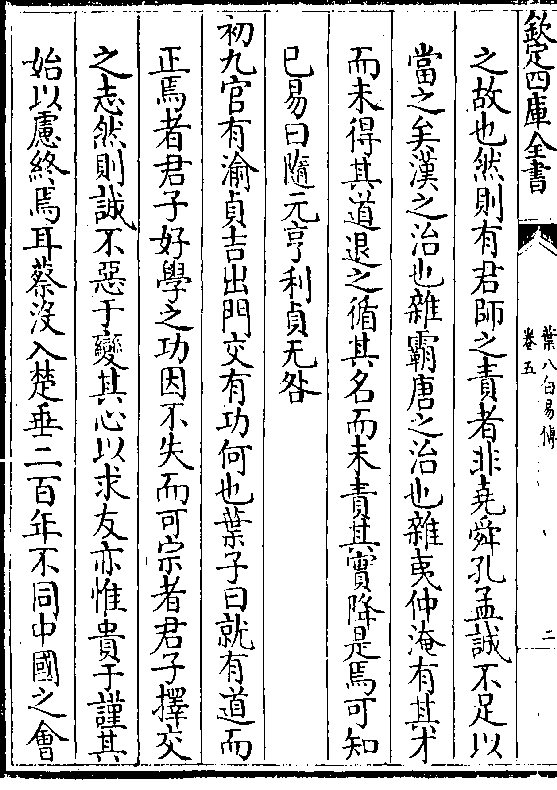 欽定四庫全書
葉八白易傳
卷五
二
之故也然則有君師之責者非堯舜孔孟誠不足以
當之矣漢之治也雜霸唐之治也雜夷仲淹有其才
而未得其道退之循其名而未責其實降是焉可知
已易曰隨元亨利貞无咎
初九官有渝貞吉出門交有功何也葉子曰就有道而
正焉者君子好學之功因不失而可宗者君子擇交
之志然則誠不惡于變其心以求友亦惟貴于謹其
始以慮終焉耳蔡沒入楚垂二百年不同中國之會